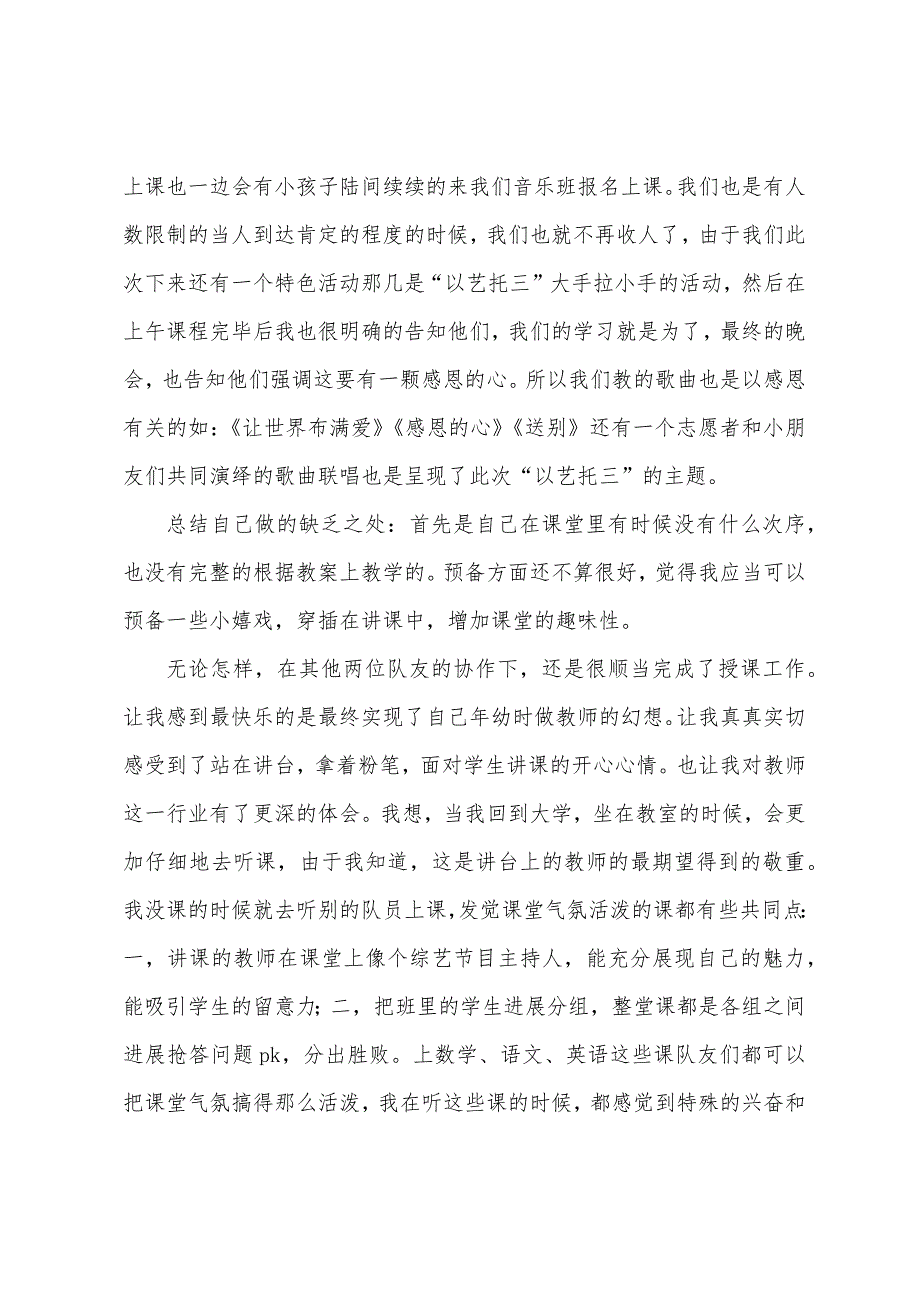 上课也一边会有小孩子陆间续续的来我们音乐班报名上课。我们也是有人
数限制的当人到达肯定的程度的时候，我们也就不再收人了，由于我们此
次下来还有一个特色活动那几是“以艺托三”大手拉小手的活动，然后在
上午课程完毕后我也很明确的告知他们，我们的学习就是为了，最终的晚
会，也告知他们强调这要有一颗感恩的心。所以我们教的歌曲也是以感恩
有关的如：《让世界布满爱》《感恩的心》《送别》还有一个志愿者和小朋
友们共同演绎的歌曲联唱也是呈现了此次“以艺托三”的主题。
总结自己做的缺乏之处：首先是自己在课堂里有时候没有什么次序，
也没有完整的根据教案上教学的。预备方面还不算很好，觉得我应当可以
预备一些小嬉戏，穿插在讲课中，增加课堂的趣味性。
无论怎样，在其他两位队友的协作下，还是很顺当完成了授课工作。
让我感到最快乐的是最终实现了自己年幼时做教师的幻想。让我真真实切
感受到了站在讲台，拿着粉笔，面对学生讲课的开心心情。也让我对教师
这一行业有了更深的体会。我想，当我回到大学，坐在教室的时候，会更
加仔细地去听课，由于我知道，这是讲台上的教师的最期望得到的敬重。
我没课的时候就去听别的队员上课，发觉课堂气氛活泼的课都有些共同点：
一，讲课的教师在课堂上像个综艺节目主持人，能充分展现自己的魅力，
能吸引学生的留意力；二，把班里的学生进展分组，整堂课都是各组之间
进展抢答问题 pk，分出胜败。上数学、语文、英语这些课队友们都可以
把课堂气氛搞得那么活泼，我在听这些课的时候，都感觉到特殊的兴奋和